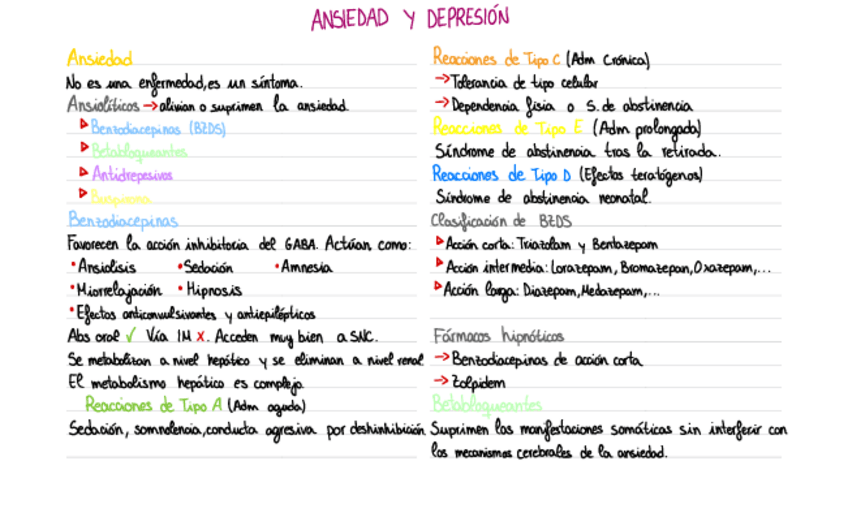 ANSIEDAD Y DEPRESIÓN
Ansiedad
No es una enfermedad, es un síntoma.
Ansiolíticos → alivian o suprimen la ansiedad.
▷ Benzodiacepinas (BZDS)
▷ Betabloqueantes
▷ Antidrepesivos
▷ Buspirona
Benzodiacepinas
Favorecen la acción inhibitoria del GABA. Actúan como:
• Ansiolisis • Sedación • Amnesia
• Miorrelajación • Hipnosis
• Efectos anticonvulsivantes y antiepilépticos
Abs oral ✓ Vía IM x. Acceden muy bien a SNC.
Se metabolizan a nivel hepático y se eliminan a nivel renal
El metabolismo hepático es complejo.
Reacciones de Tipo A (Adm aguda)
Sedación, somnolencia, conducta agresiva por deshinhibición.
Reacciones de Tipo C (Adm Crónica)
→ Tolerancia de tipo celular
→ Dependencia física o S. de abstinencia
Reacciones de Tipo E (Adm prolongada)
Síndrome de abstinencia tras la retirada.
Reacciones de Tipo D (Efectos teratógenos)
Síndrome de abstinencia neonatal.
Clasificación de BZDS
▷ Acción corta: Triazolam y Bentazepam
▷ Acción intermedia: Lorazepam, Bromazepan, Oxazepam,...
▷ Acción larga: Diazepam, Medazepam,...
Fármacos hipnóticos
→ Benzodiacepinas de acción corta
→ Zolpidem
Betabloqueantes
Suprimen las manifestaciones somáticas sin interferir con
los mecanismos cerebrales de la ansiedad.